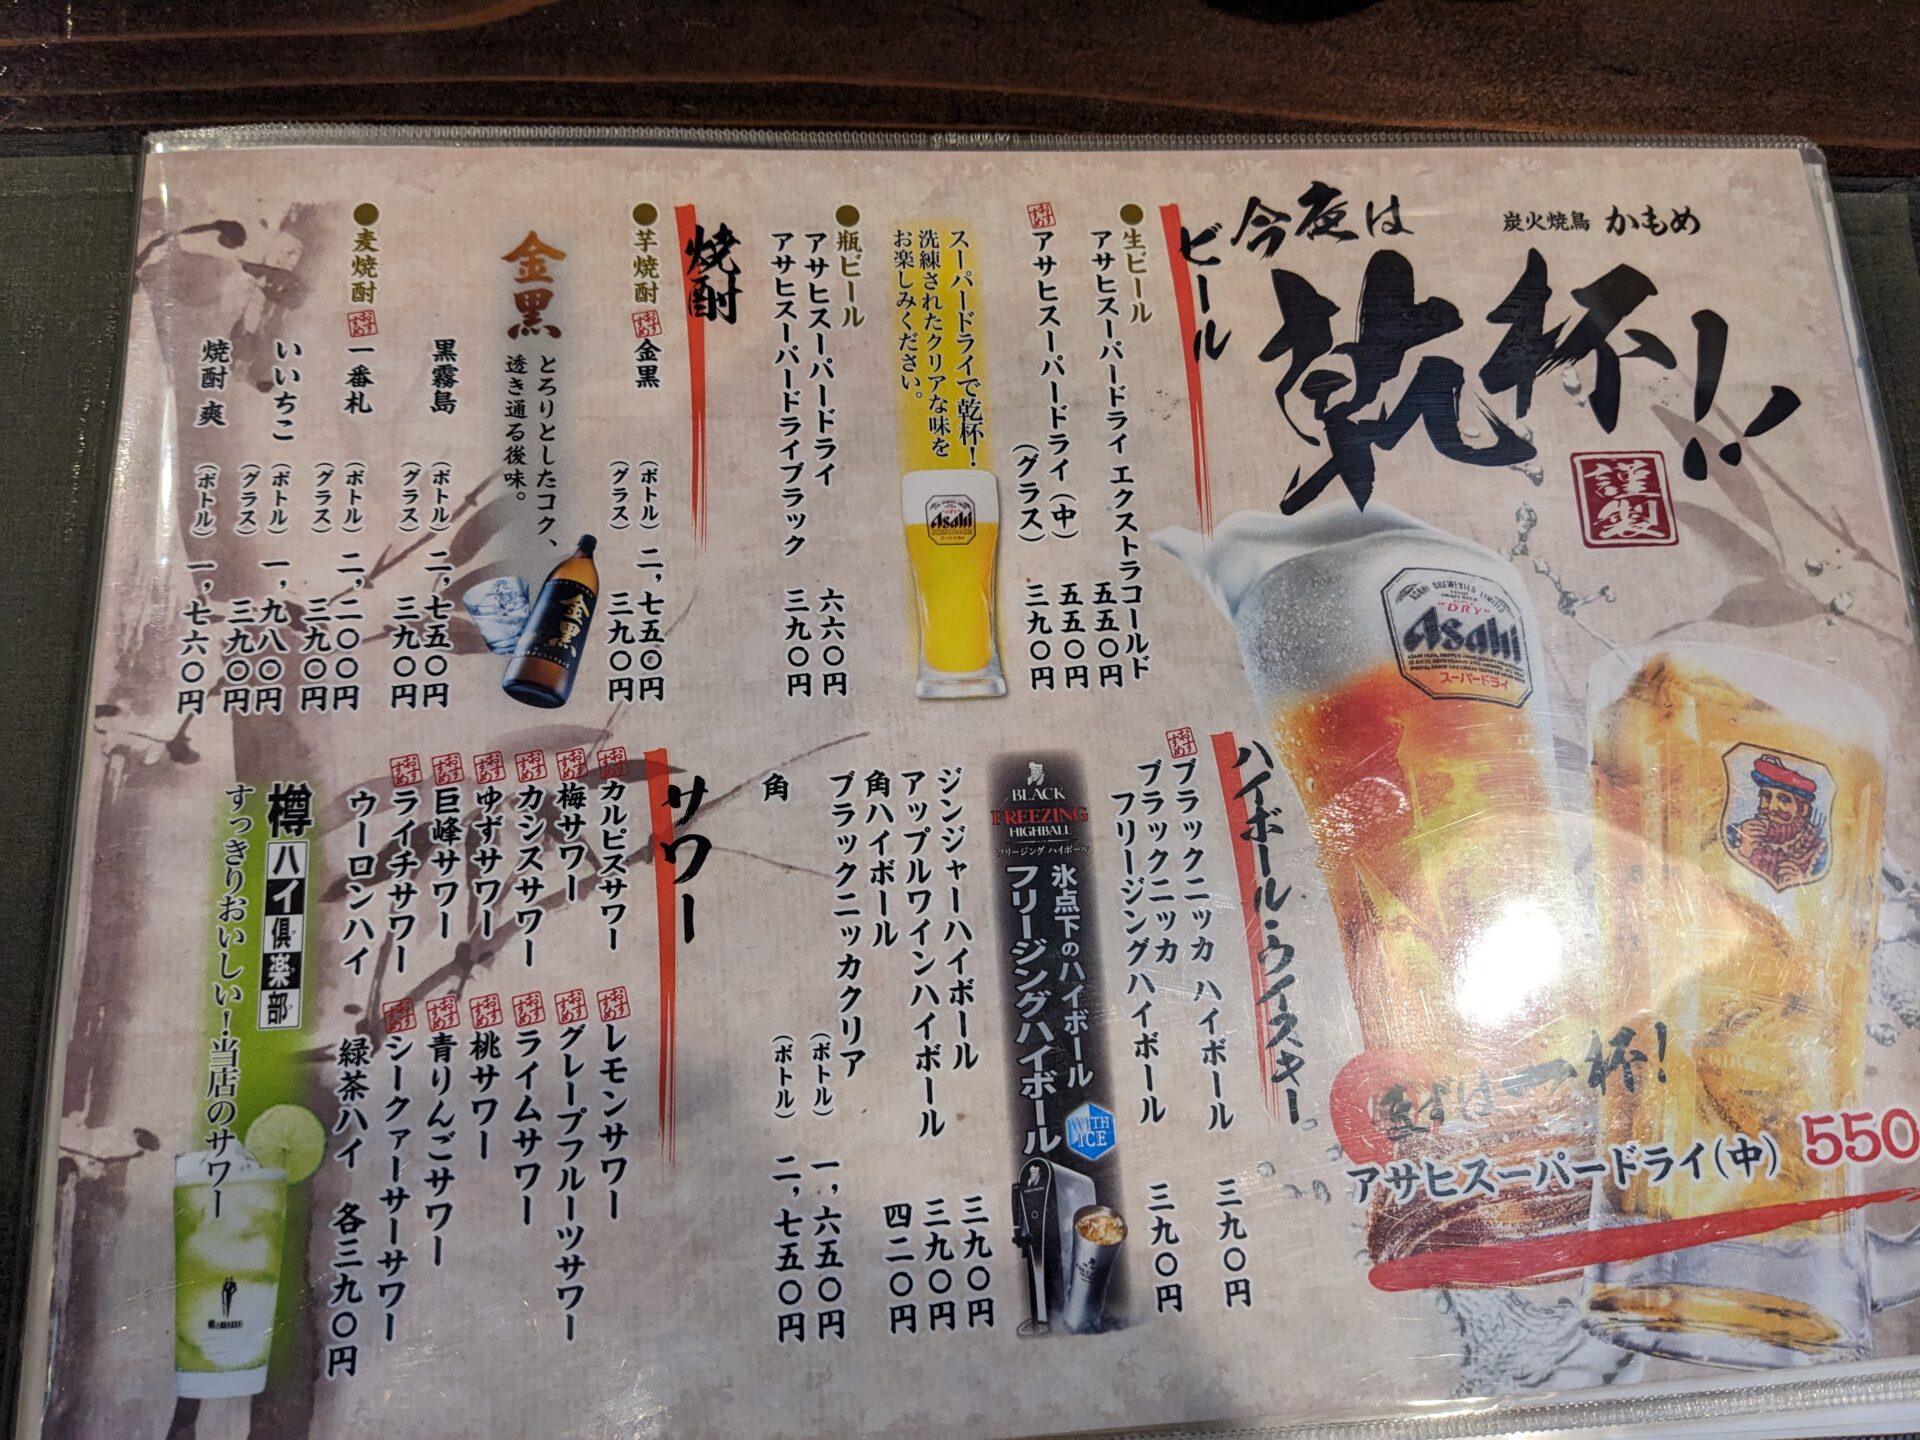 炭火焼鳥 かもめ
今夜は
乾杯!!
謹製
ビール
●生ビール
アサヒスーパードライ エクストラコールド 五五〇円
おすすめ アサヒスーパードライ(中) 五五〇円
(グラス) 三九〇円
スーパードライで乾杯!
洗練されたクリアな味を
お楽しみください。
Asahi
スーパードライ
●瓶ビール
アサヒスーパードライ 六六〇円
アサヒスーパードライブラック 三九〇円
焼酎
●芋焼酎
おすすめ 金黒 (ボトル) 二,七五〇円
(グラス) 三九〇円
金黒
とろりとしたコク、
透き通る後味。
金黒
黒霧島 (ボトル) 二,七五〇円
(グラス) 三九〇円
●麦焼酎
おすすめ 一番札 (ボトル) 二,二〇〇円
(グラス) 三九〇円
いいちこ (ボトル) 一,九八〇円
(グラス) 三九〇円
焼酎 爽 (ボトル) 一,七六〇円
ASAHI BREWERIES LIMITED
"DRY"
Asahi
スーパードライ
まずは一杯!
アサヒスーパードライ(中) 550
ハイボール・ウイスキー
おすすめ ブラックニッカ ハイボール 三九〇円
ブラックニッカ
フリージングハイボール 三九〇円
BLACK
FREEZING
HIGHBALL
フリージング ハイボール
氷点下のハイボール
フリージングハイボール
WITH ICE
ジンジャーハイボール 三九〇円
アップルワインハイボール 三九〇円
角ハイボール 四二〇円
ブラックニッカクリア (ボトル) 一,六五〇円
角 (ボトル) 二,七五〇円
サワー
おすすめ カルピスサワー
おすすめ レモンサワー
おすすめ 梅サワー
おすすめ グレープフルーツサワー
おすすめ カシスサワー
おすすめ ライムサワー
おすすめ ゆずサワー
おすすめ 桃サワー
おすすめ 巨峰サワー
おすすめ 青りんごサワー
おすすめ ライチサワー
おすすめ シークァーサーサワー
ウーロンハイ
緑茶ハイ
各三九〇円
樽ハイ倶楽部
すっきりおいしい!当店のサワー